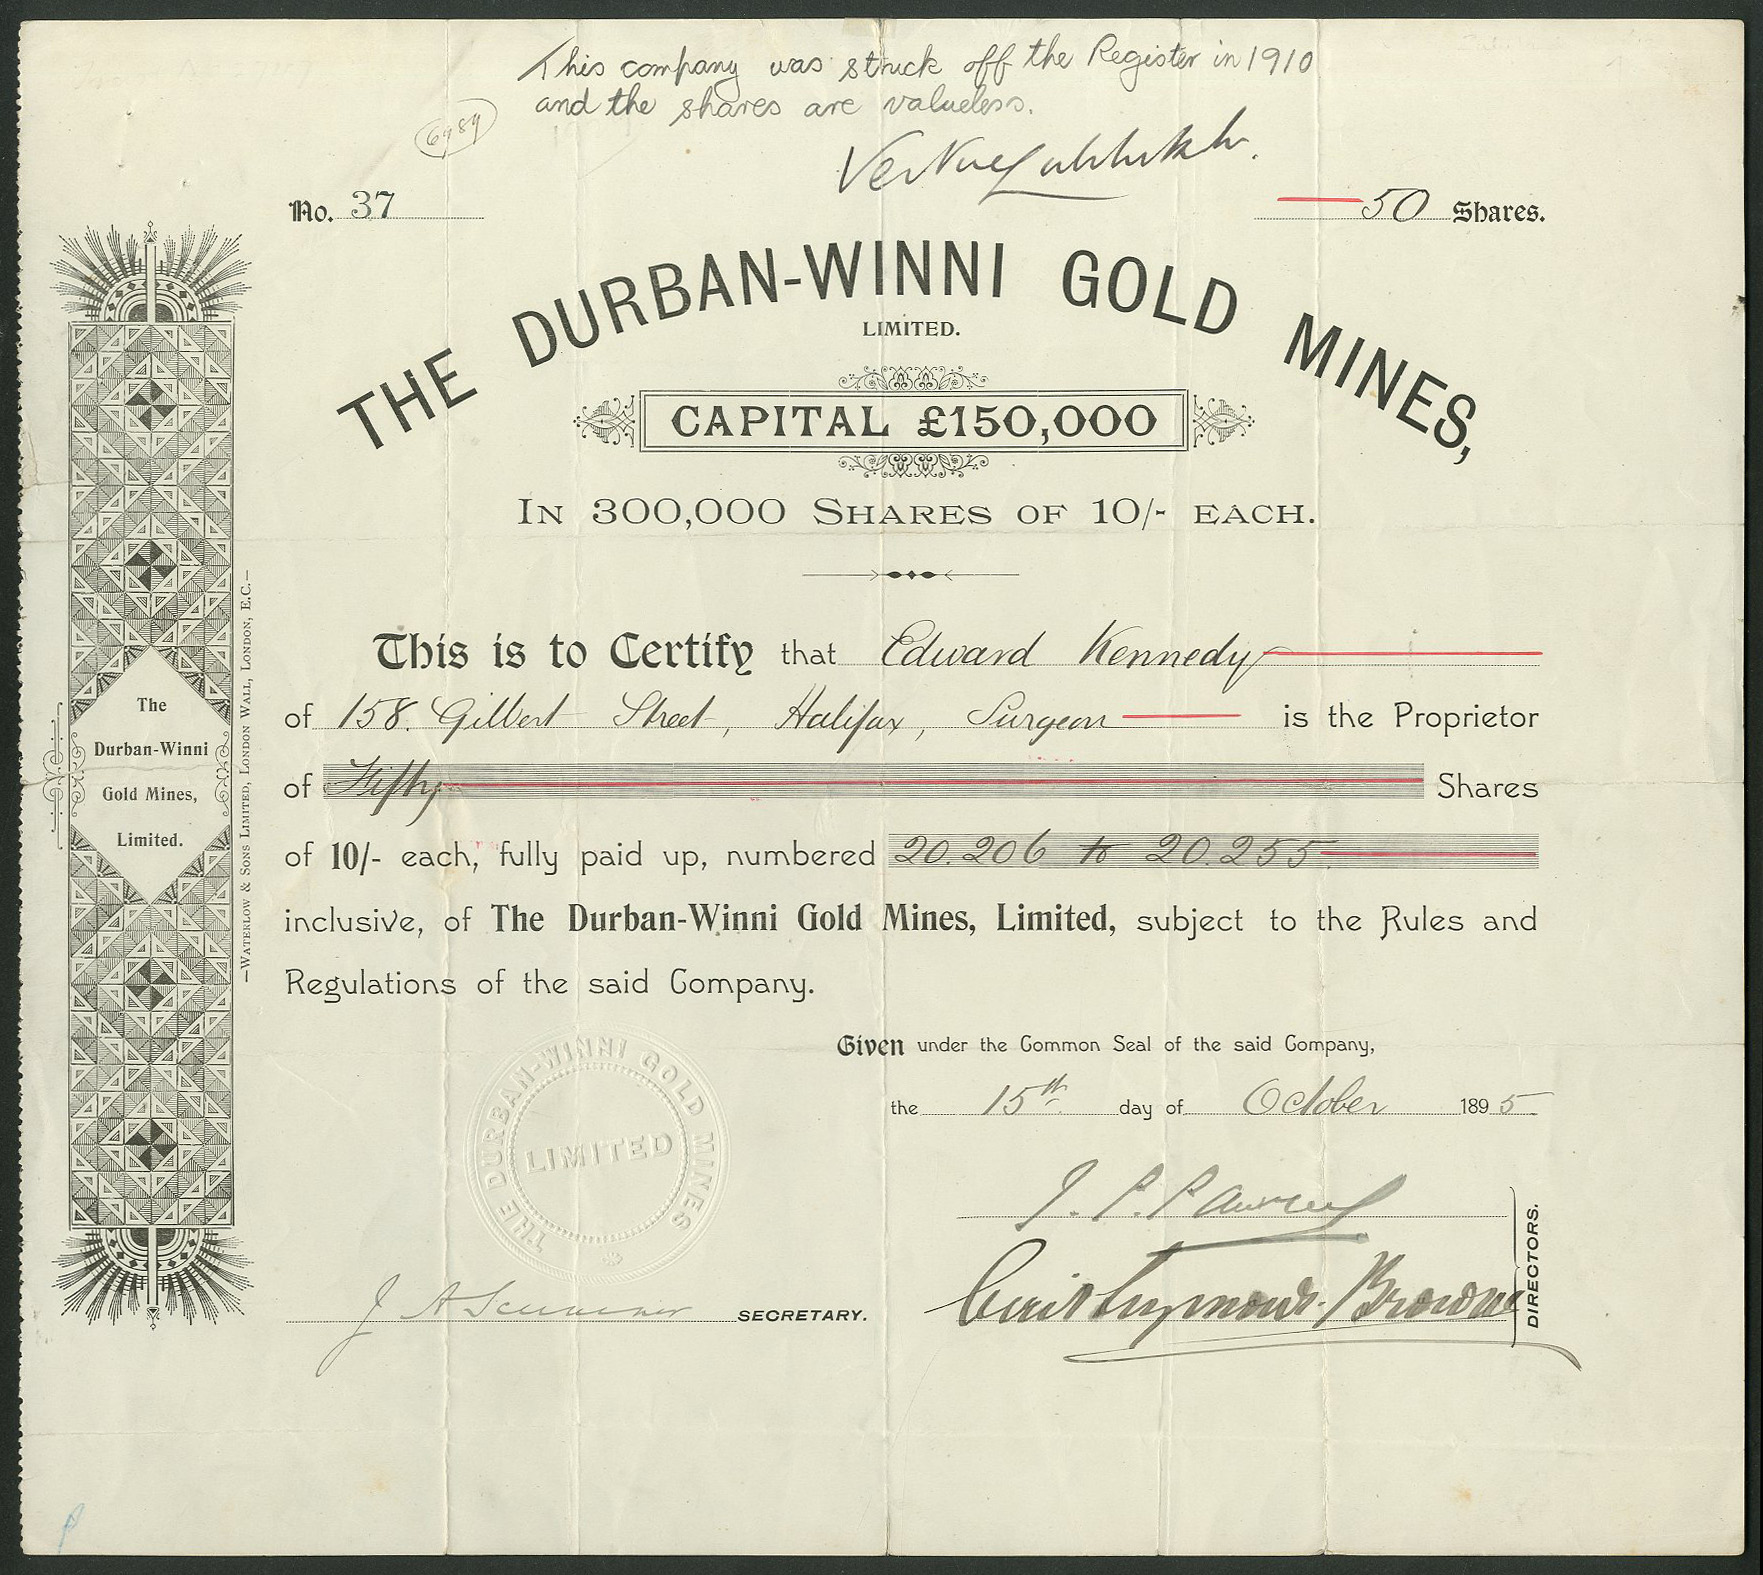 This company was struck off the Register in 1910
and the shares are valueless.
6989
No. 37
50 Shares.
THE DURBAN-WINNI GOLD MINES,
LIMITED.
CAPITAL £150,000
IN 300,000 SHARES OF 10/- EACH.
This is to Certify that Edward Kennedy
of 158 Gilbert Street, Halifax, Surgeon is the Proprietor
of Fifty Shares
of 10/- each, fully paid up, numbered 20.206 to 20.255
inclusive, of The Durban-Winni Gold Mines, Limited, subject to the Rules and
Regulations of the said Company.
Given under the Common Seal of the said Company,
the 15th day of October 1895
THE DURBAN-WINNI GOLD MINES
LIMITED
J. P.
Browne
DIRECTORS.
J A
SECRETARY.
The
Durban-Winni
Gold Mines,
Limited.
—WATERLOW & SONS LIMITED, LONDON WALL, LONDON, E.C.—